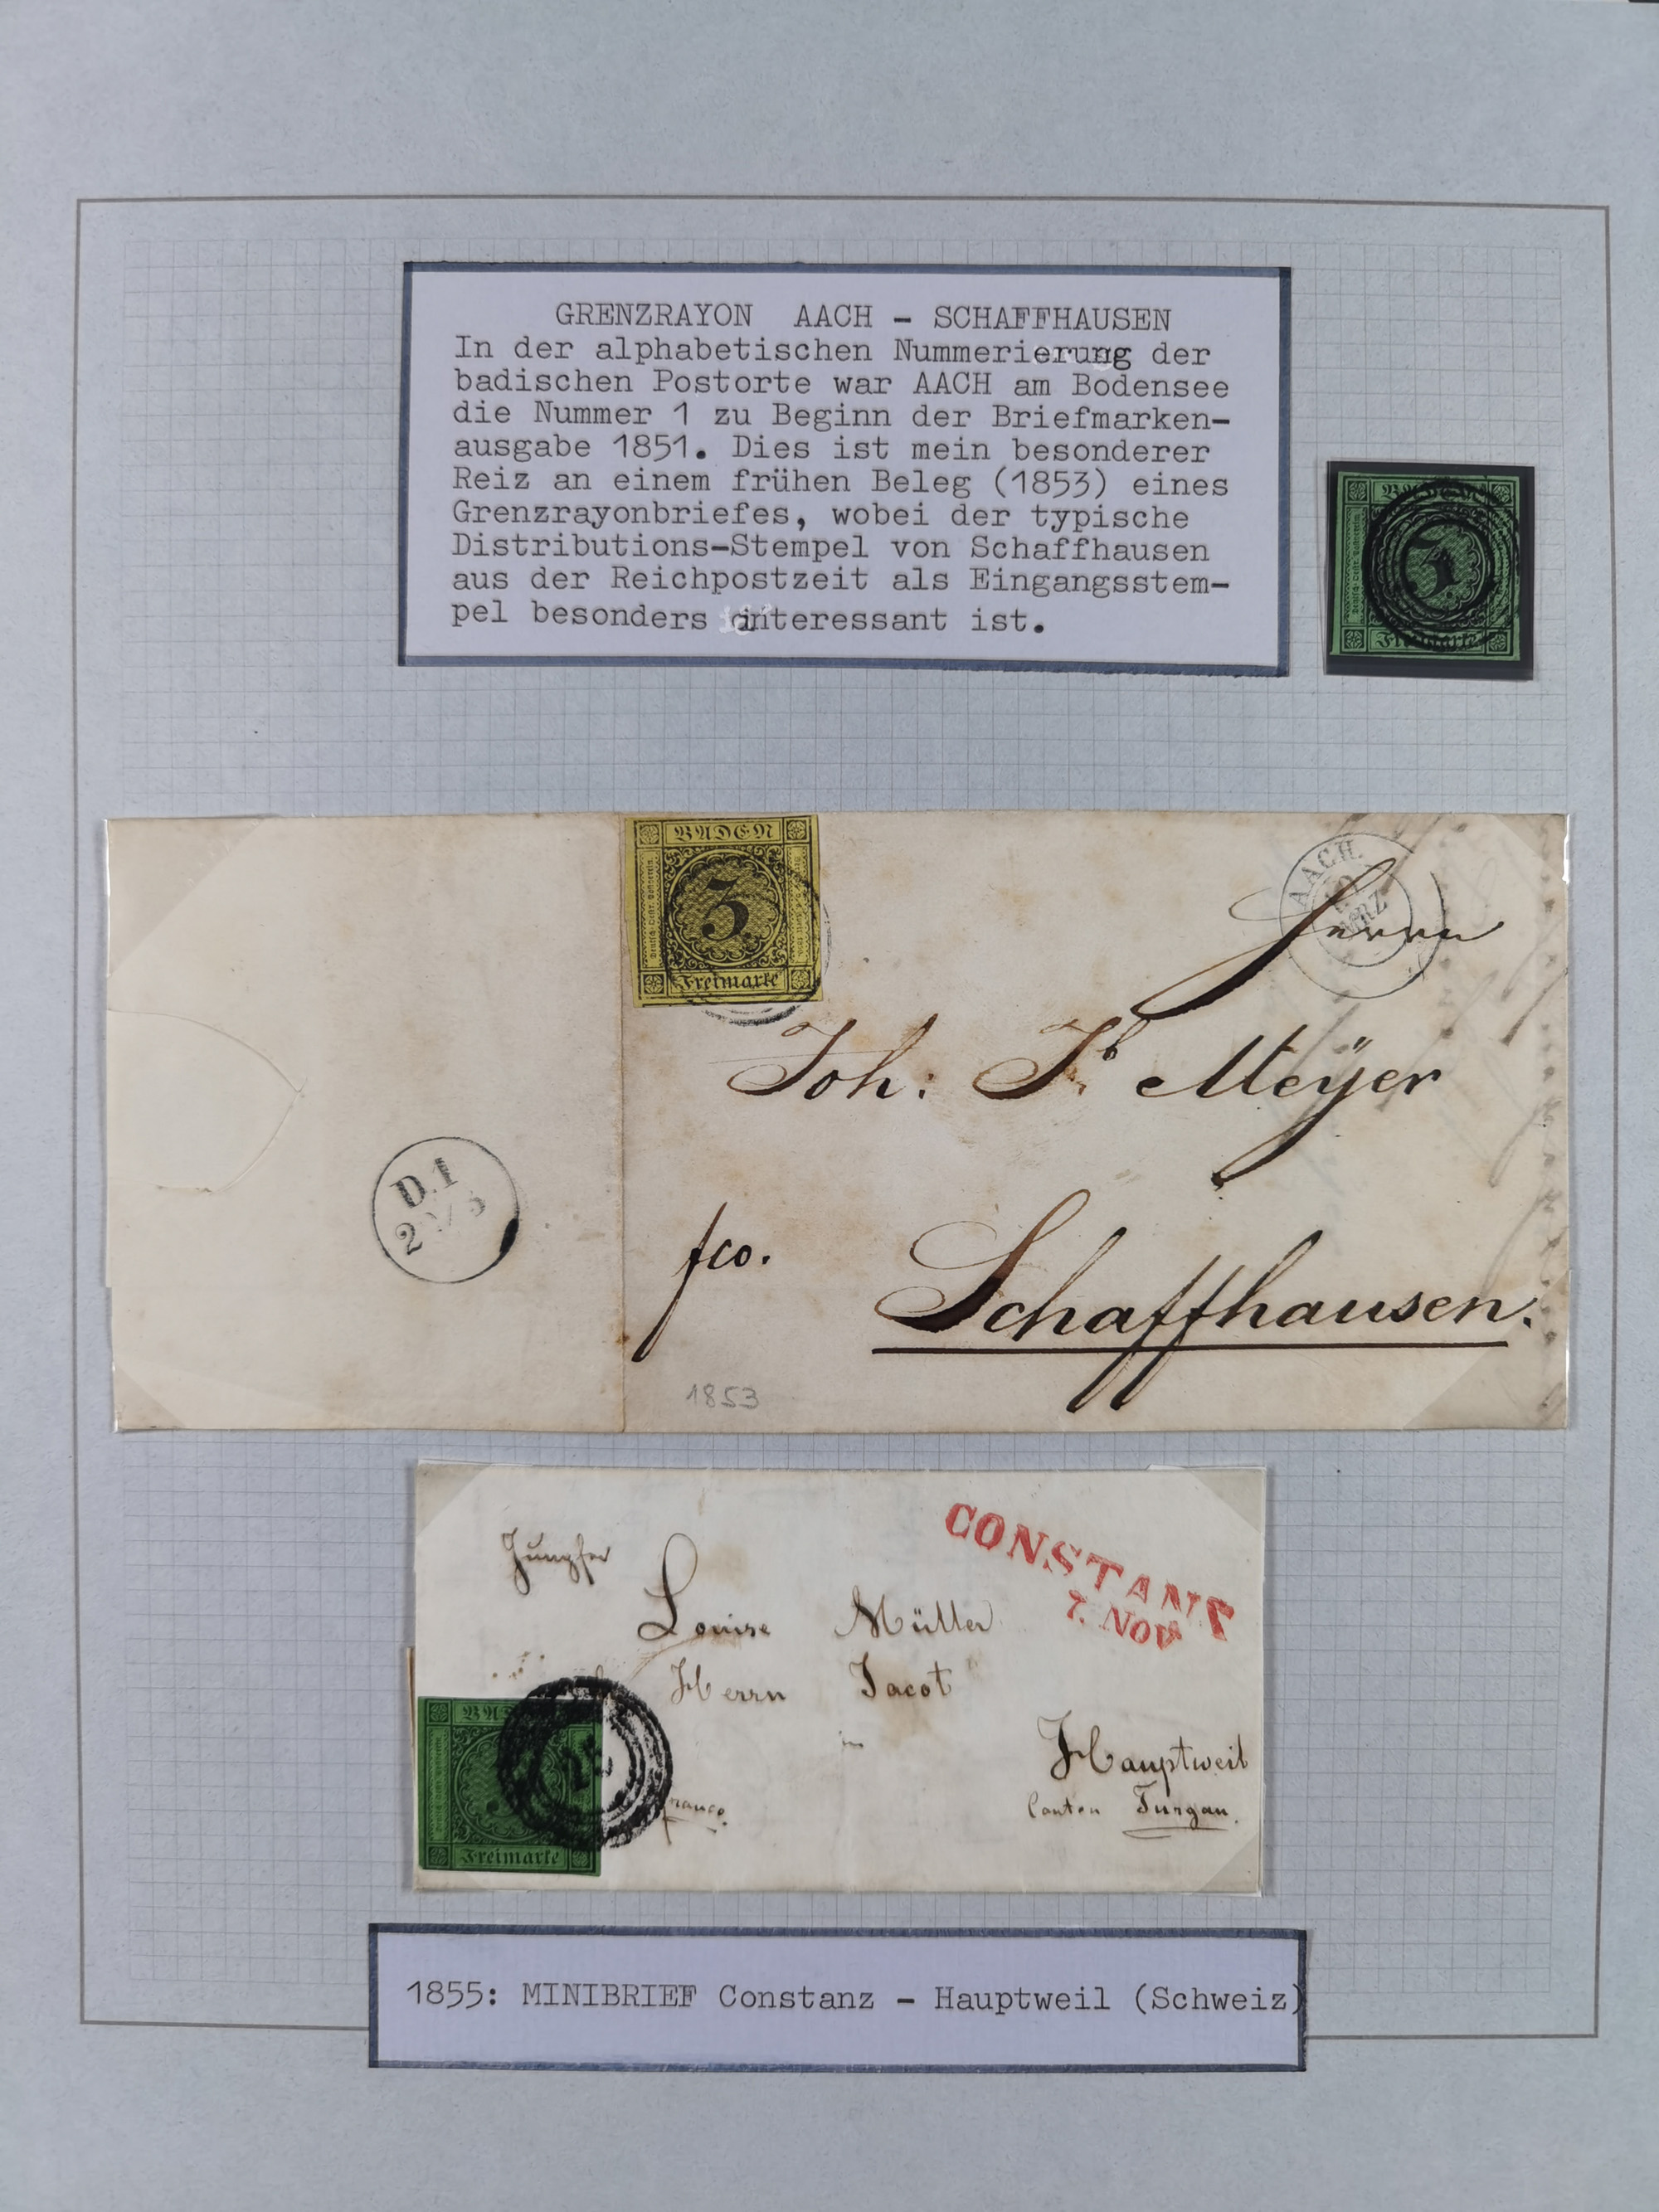 GRENZRAYON AACH - SCHAFFHAUSEN
In der alphabetischen Nummerierung der
badischen Postorte war AACH am Bodensee
die Nummer 1 zu Beginn der Briefmarken-
ausgabe 1851. Dies ist mein besonderer
Reiz an einem frühen Beleg (1853) eines
Grenzrayonbriefes, wobei der typische
Distributions-Stempel von Schaffhausen
aus der Reichpostzeit als Eingangsstem-
pel besonders interessant ist.
BADEN
3
Freimarke
BADEN
3
Freimarke
AACH.
MRZ
Herrn
Joh: Jb Meÿer
fco.
Schaffhausen.
D.1
1853
CONSTANZ
7. NOV
Jungfer
Louise Müller
Herrn Jacot
in
Hauptweil
Canton Turgau.
franco.
Freimarke
1855: MINIBRIEF Constanz - Hauptweil (Schweiz)